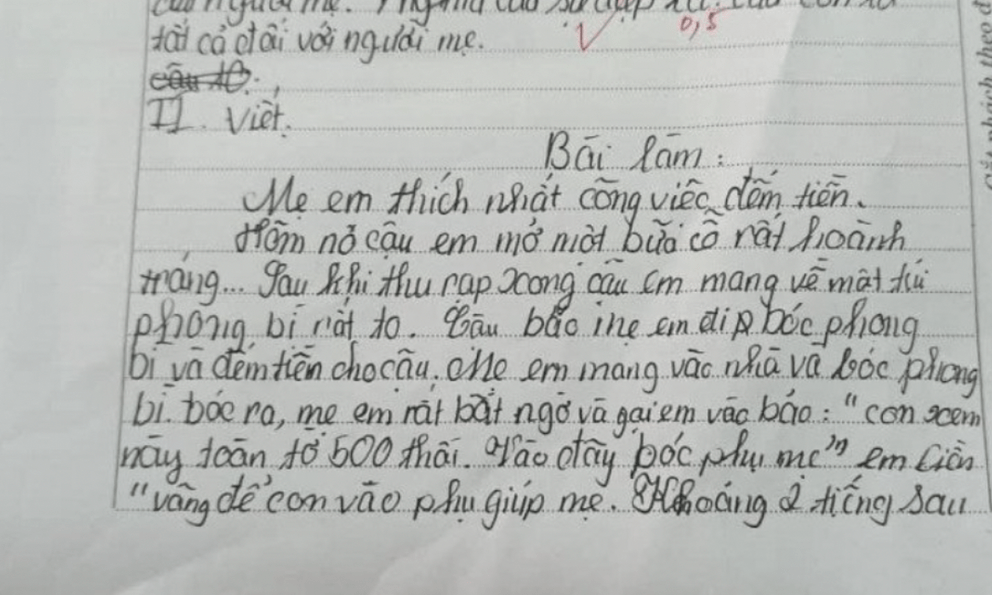 của người mẹ.
tất cả đối với người mẹ.
0,5
câu 10:
II. Viết.
Bài làm:
Mẹ em thích nhất công việc đếm tiền.
Hôm nọ cậu em mở một bữa cỗ rất hoành
tráng... Sau khi thu rạp xong cậu em mang về một túi
phong bì rất to. Cậu bảo mẹ em bóc phong
bì và đếm tiền cho cậu. Mẹ em mang vào nhà và bóc phong
bì. bóc ra, mẹ em rất bất ngờ và gọi em vào bảo: "con xem
này toàn tờ 500 thôi. Vào đây bóc phụ mẹ" em liền
"vâng để con vào phụ giúp mẹ. Khoảng 2 tiếng sau